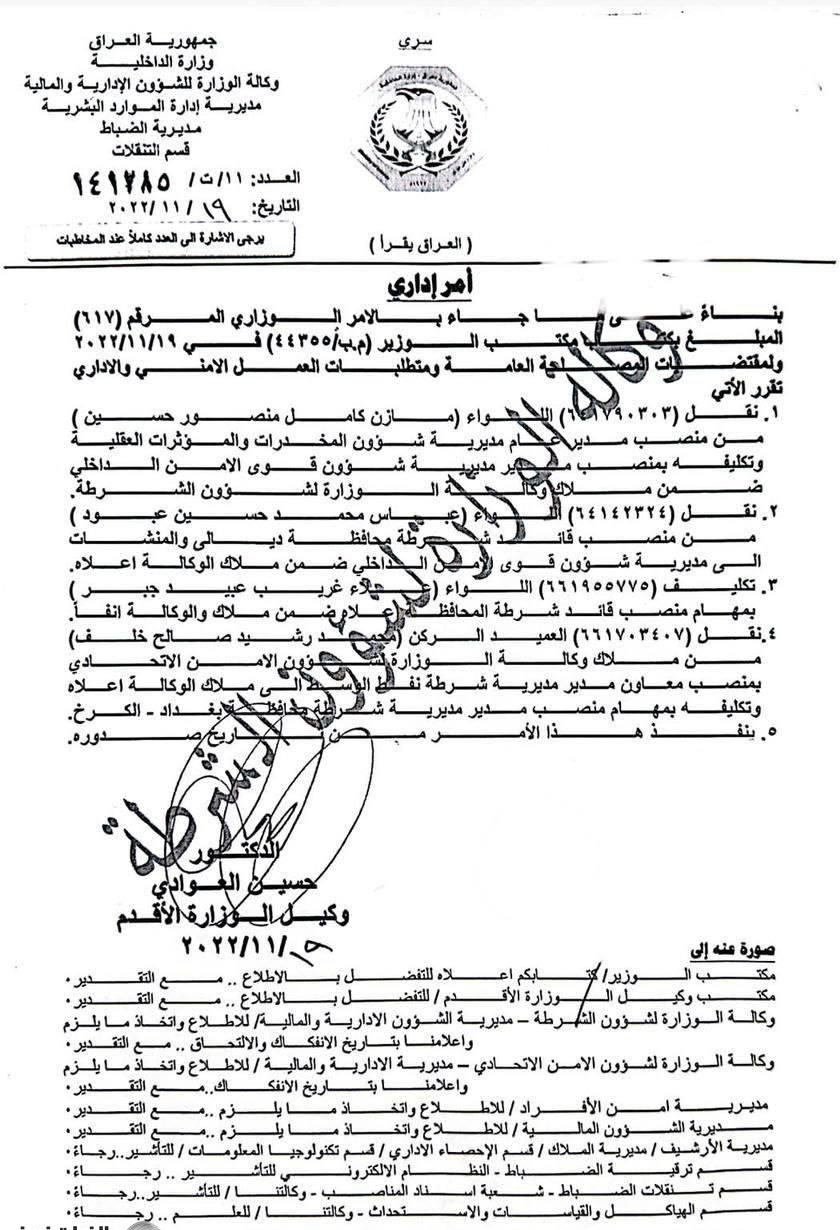 سري
جمهورية العراق
وزارة الداخليـــة
وكالة الوزارة للشؤون الإدارية والمالية
مديرية إدارة الموارد البشرية
مديرية الضباط
قسم التنقلات
العدد: ١١/ت/ ١٤١٢٨٥
التاريخ: ١٩/ ١١/ ٢٠٢٢
يرجى الاشارة الى العدد كاملاً عند المخاطبات
( العراق يقرأ )
أمر إداري
بناءً على ما جاء بالامر الوزاري المرقم (٦١٧)
المبلغ بكتاب مكتب الوزير (م.ب/٤٤٣٥٥) في ٢٠٢٢/١١/١٩
ولمقتضيات المصلحة العامة ومتطلبات العمل الامني والاداري
تقرر الأتي
١. نقل اللواء (مازن كامل منصور حسين )
من منصب مدير عام مديرية شؤون المخدرات والمؤثرات العقلية
وتكليفه بمنصب مدير مديرية شؤون قوى الامن الداخلي
ضمن ملاك وكالة الوزارة لشؤون الشرطة.
٢. نقل (٦٤١٤٢٣٢٤) اللواء (عباس محمد حسين عبود )
من منصب قائد شرطة محافظة ديالى والمنشات
الى مديرية شؤون قوى الامن الداخلي ضمن ملاك الوكالة اعلاه.
٣. تكليف (٦٦١٩٥٥٧٧٥) اللواء (علاء غريب عبيد جبر )
بمهام منصب قائد شرطة المحافظة اعلاه ضمن ملاك والوكالة انفاً.
٤. نقل (٦٦١٧٠٣٤٠٧) العميد الركن (محمد رشيد صالح خلف)
من ملاك وكالة الوزارة لشؤون الامن الاتحادي
بمنصب معاون مدير مديرية شرطة نفط الوسط الى ملاك الوكالة اعلاه
وتكليفه بمهام منصب مدير مديرية شرطة محافظة بغداد - الكرخ.
٥. ينفذ هذا الأمر من تاريخ صدوره.
وكالة الوزارة لشؤون الشرطة
الدكتور
حسين العوادي
وكيل الوزارة الأقدم
١٩/١١/٢٠٢٢
صورة عنه إلى
مكتب الوزير/ كتابكم اعلاه للتفضل بالاطلاع .. مع التقدير.
مكتب وكيل الوزارة الأقدم / للتفضل بالاطلاع .. مع التقدير.
وكالة الوزارة لشؤون الشرطة – مديرية الشؤون الادارية والمالية/ للاطلاع واتخاذ ما يلزم
واعلامنا بتاريخ الانفكاك والالتحاق .. مع التقدير.
وكالة الوزارة لشؤون الامن الاتحادي – مديرية الادارية والمالية / للاطلاع واتخاذ ما يلزم
واعلامنا بتاريخ الانفكاك..مع التقدير.
مديرية امن الأفراد / للاطلاع واتخاذ ما يلزم ..مع التقدير.
مديرية الشؤون المالية / للاطلاع واتخاذ ما يلزم ..مع التقدير.
مديرية الأرشيف / مديرية الملاك / قسم الإحصاء الاداري / قسم تكنولوجيا المعلومات / للتأشير..رجاءً.
قسم ترقية الضباط - النظام الالكتروني للتأشير .. رجاءً.
قسم تنقلات الضباط - شعبة اسناد المناصب - وكالتنا / للتأشير..رجاءً.
قسم الهياكل والقياسات والاستحداث - وكالتنا / للعلم .. رجاءً.